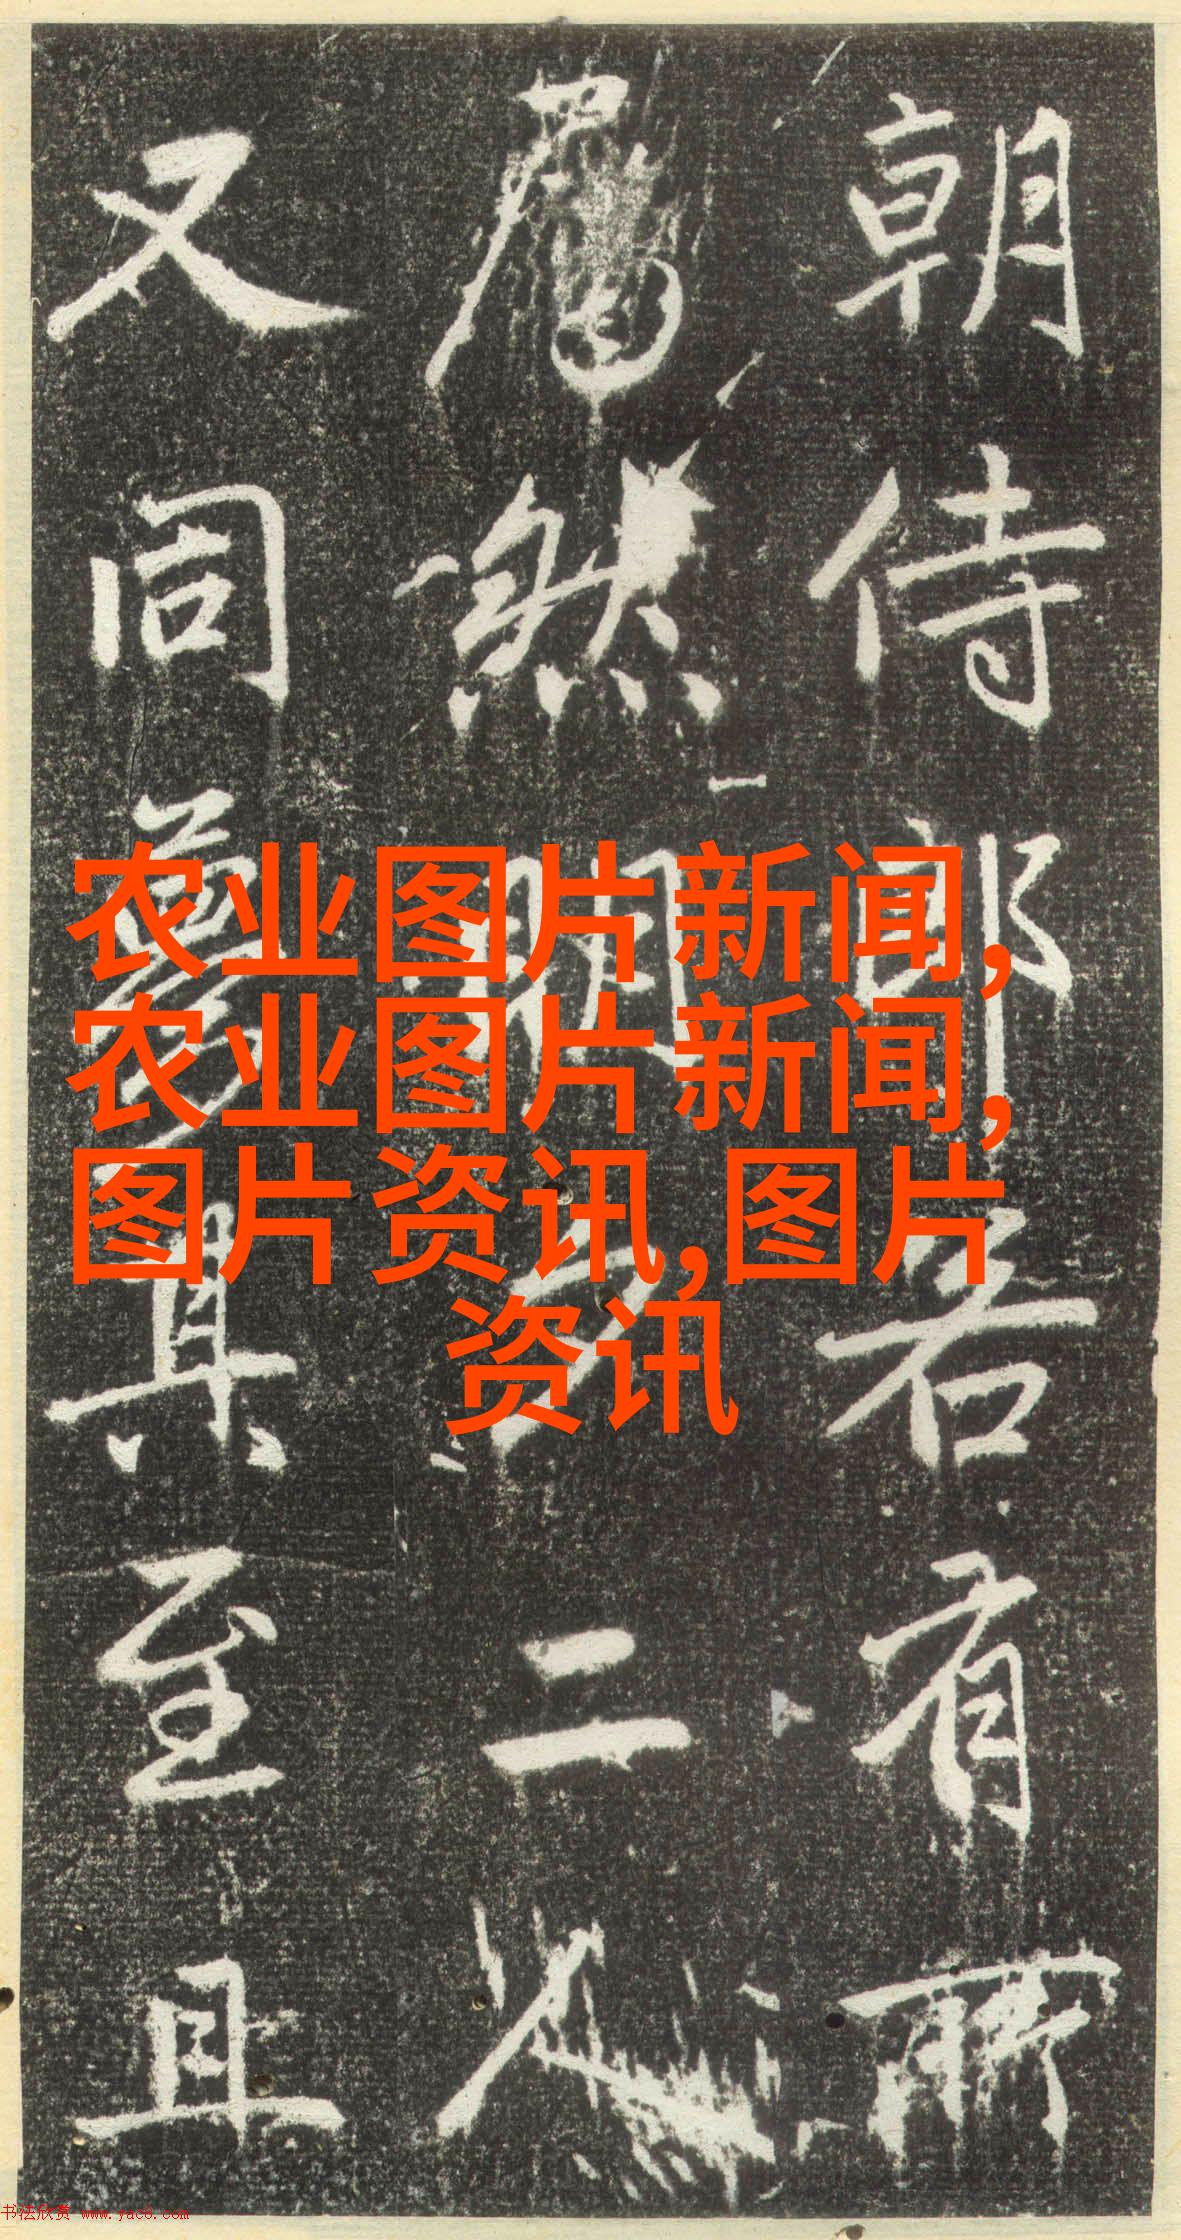 朝侍郎若有所
然明夕二人
又同夢其至且
农业图片新闻,
农业图片新闻,
图片资讯,图片
资讯
书法欣赏 www.yac8.com